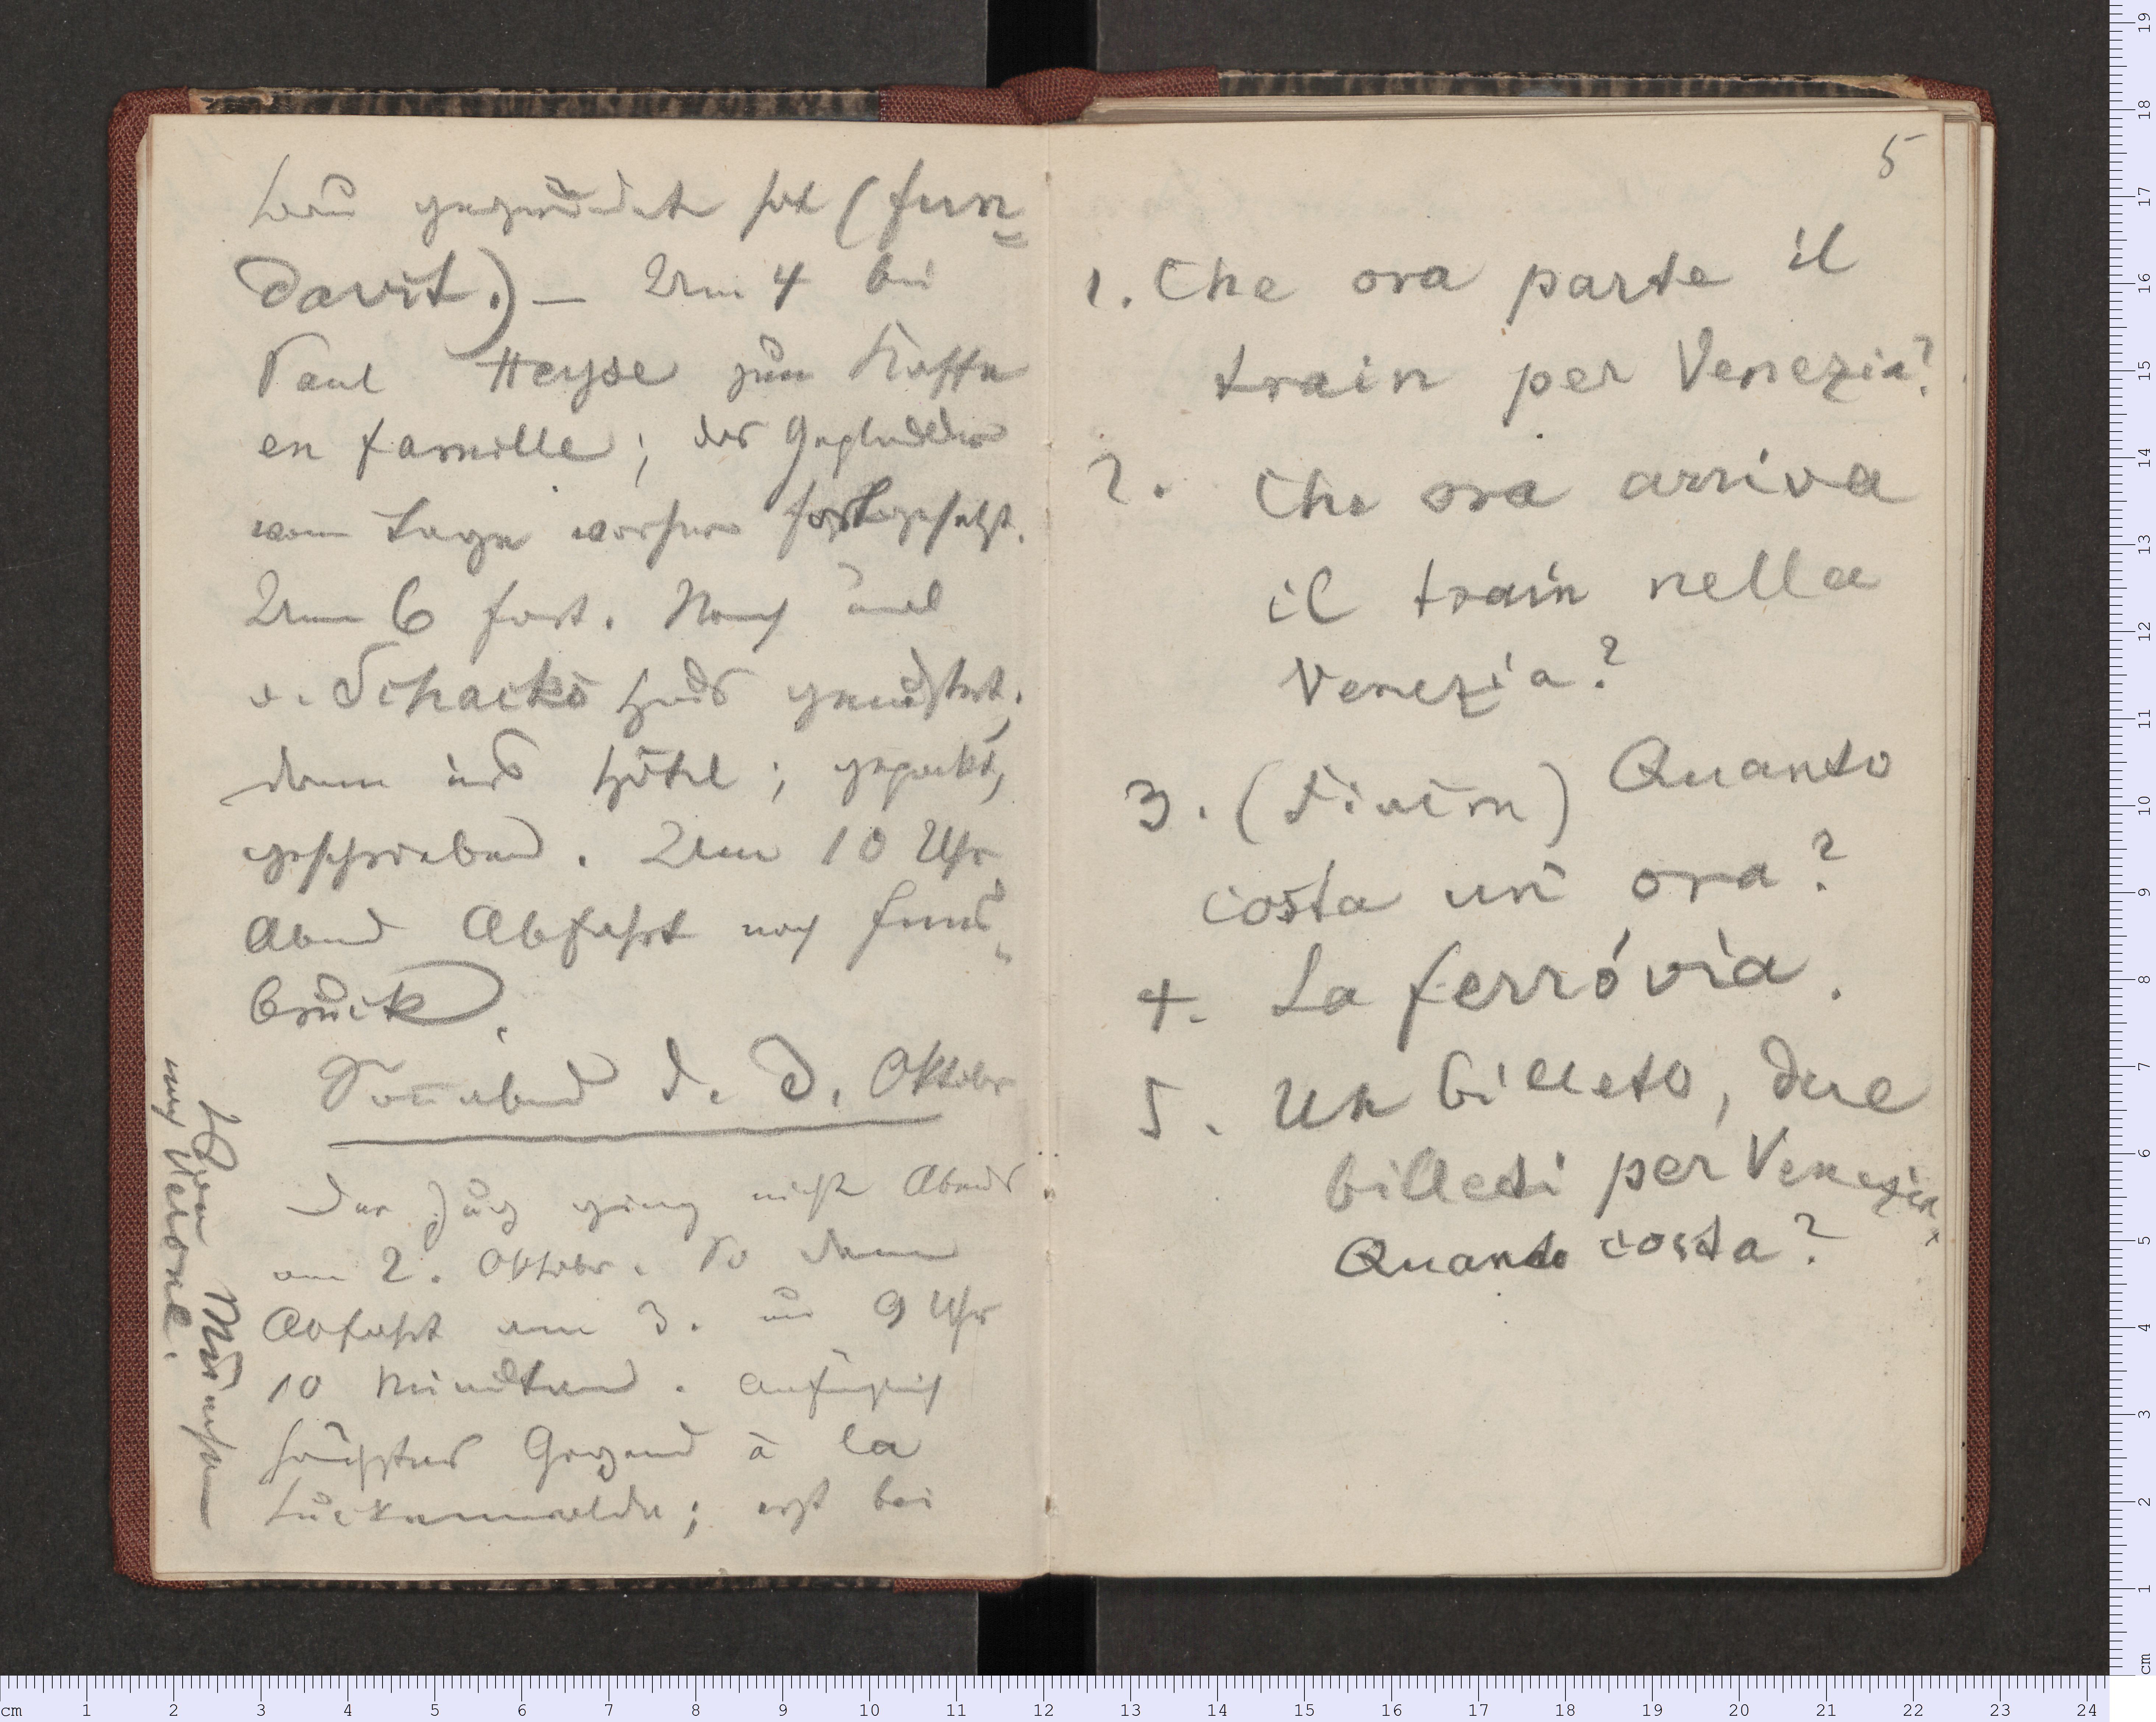 bau gegründet hat (fun-
davit.) — Um 4 bei
Paul Heyse zum Kaffe
en famille; das Geplauder
vom Tage vorher fortgesetzt.
Um 6 fort. Noch mal
v. Schacks Haus gemustert,
dann ins Hôtel; gepackt,
geschrieben. Um 10 Uhr
Abend Abfahrt nach Inns-
bruck.
Sonnabend d. 3. Oktober
Der Zug ging nicht Abends
am 2. Oktober. So denn
Abfahrt am 3. um 9 Uhr
10 Minuten. Anfänglich
Gegend à la
Luckenwalde; erst bei
Von München
nach Verona.
5
1. Che ora parte il
train per Venezia?
2. Che ora arriva
il train nella
Venezia?
3. (Fiacre) Quanto
costa un ora?
4. La ferróvia.
5. Un billeto, due
billeti per Venezia
Quanto costa?